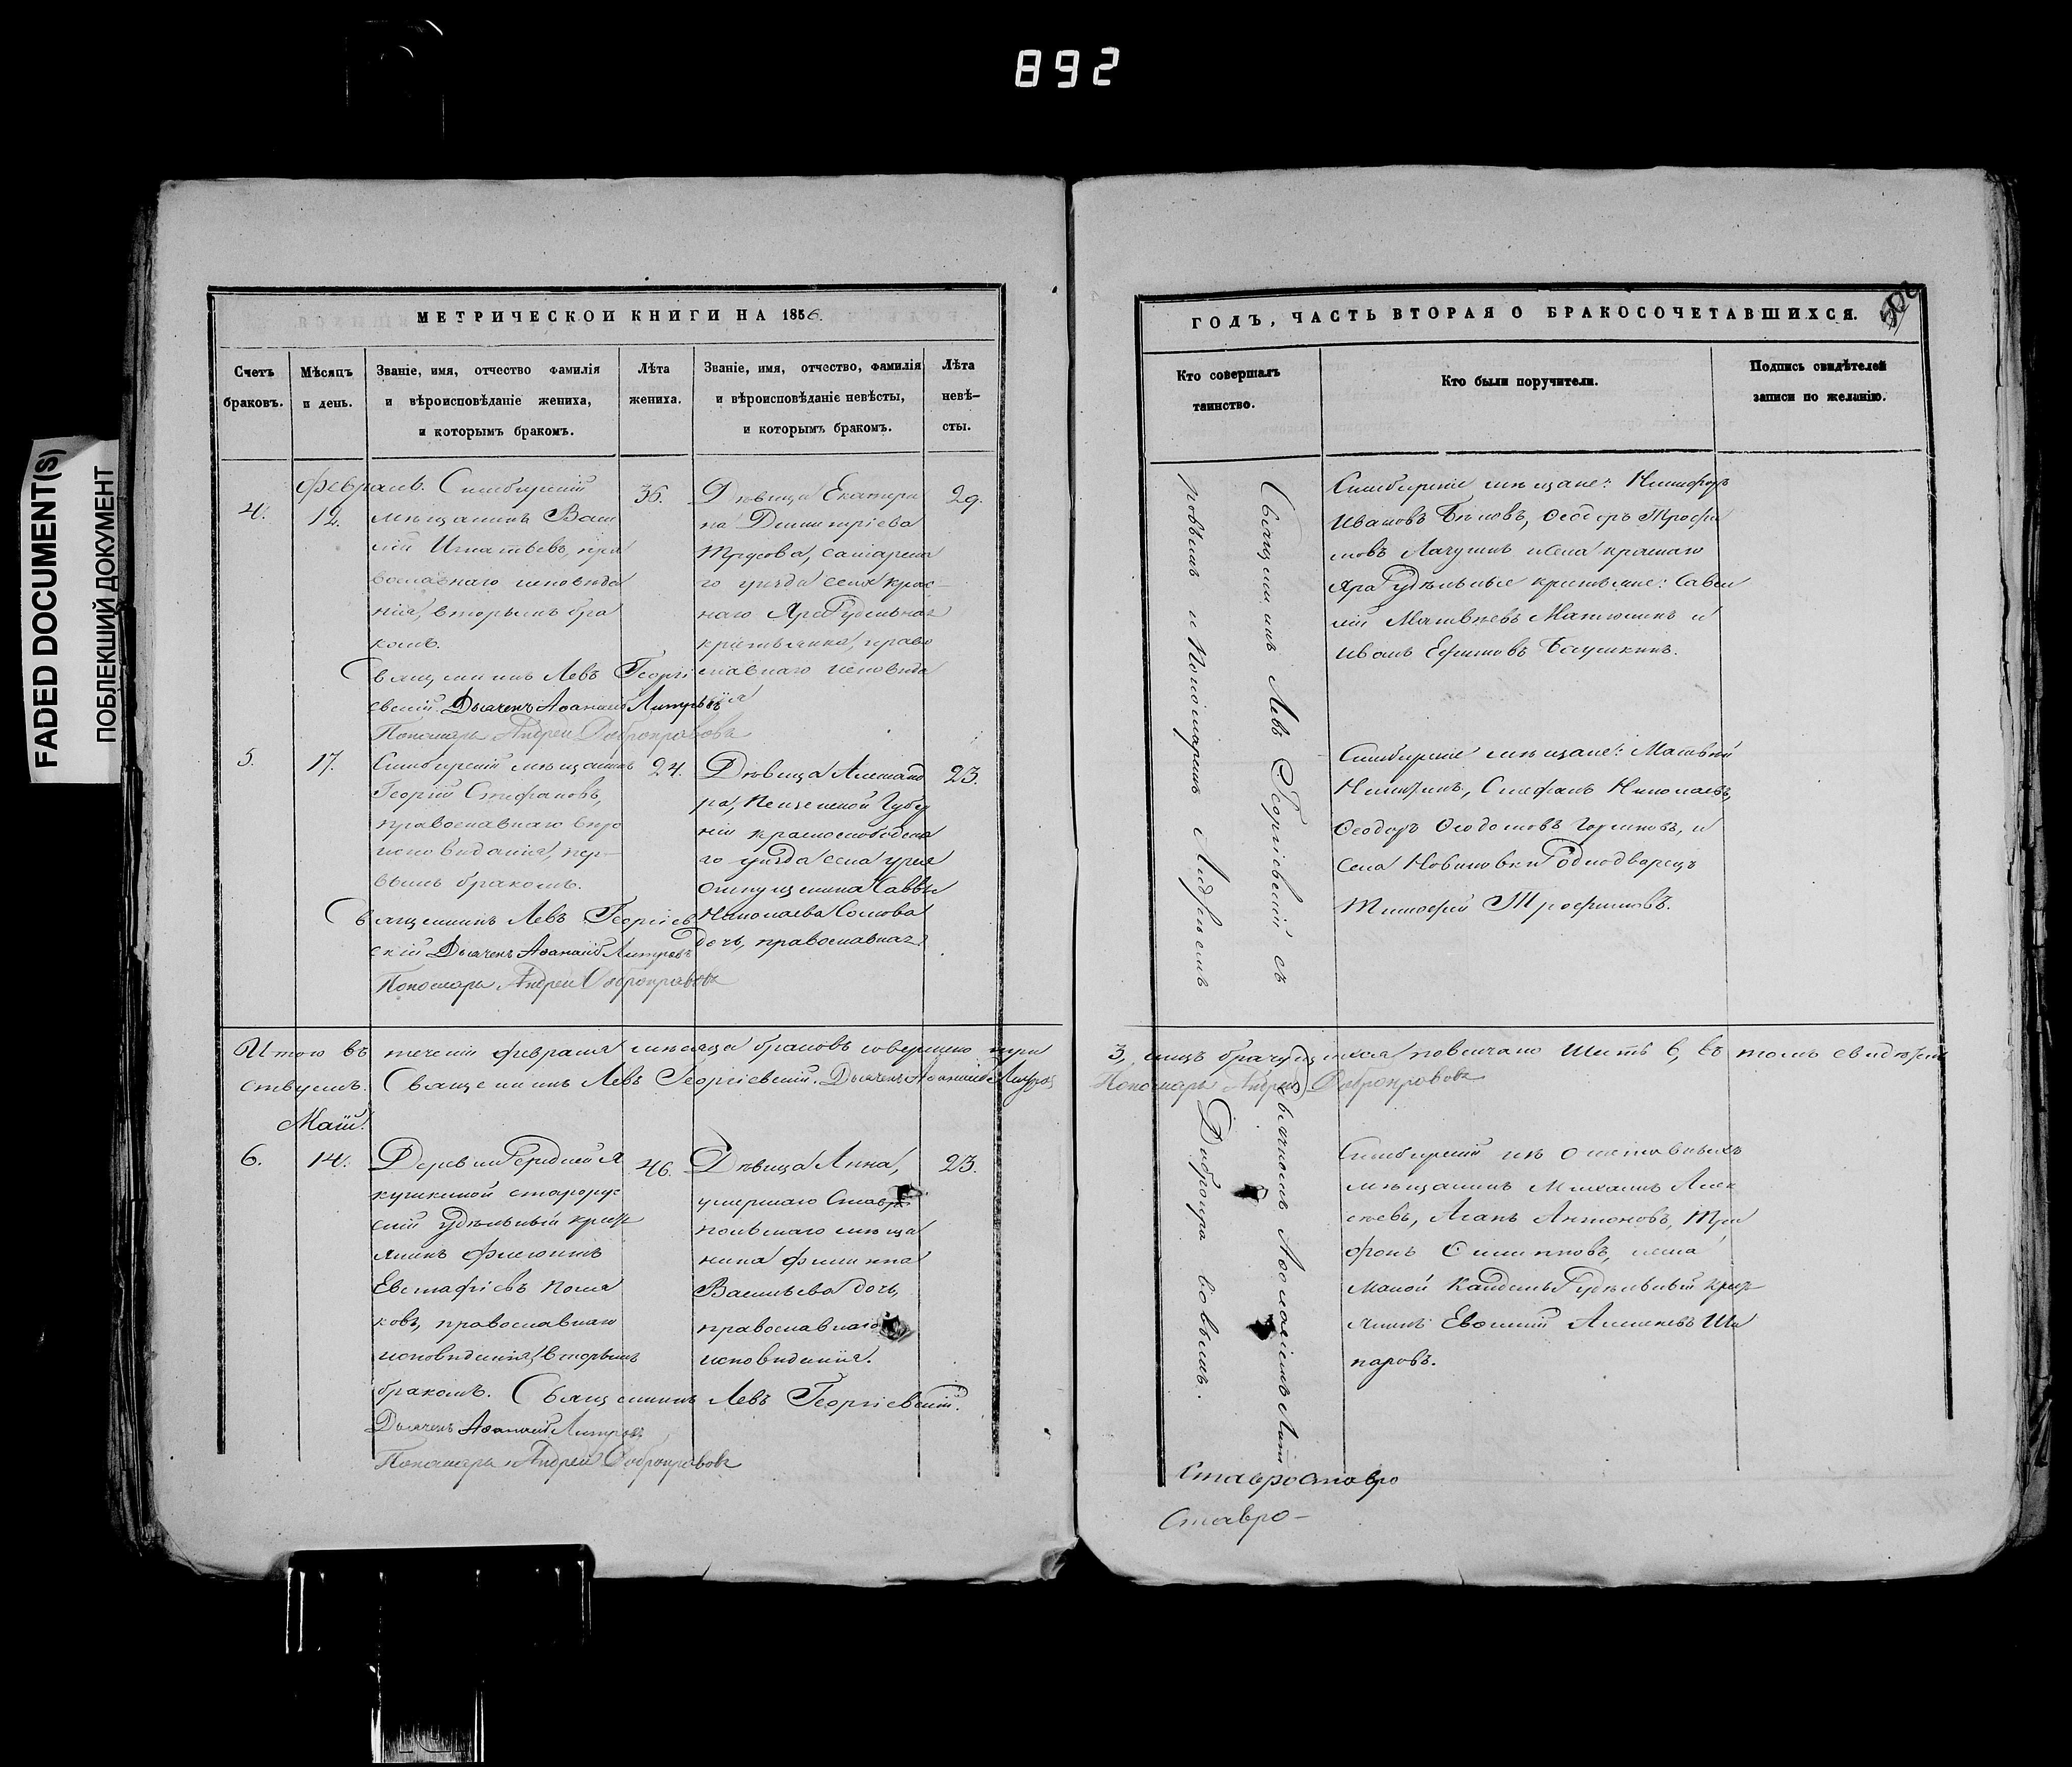 892
FADED DOCUMENT(S)
ПОБЛЕКШИЙ ДОКУМЕНТ
МЕТРИЧЕСКОЙ КНИГИ НА 1856.
Счетъ браковъ.
Мѣсяцъ и день.
Званіе, имя, отчество фамилія
и вѣроисповѣданіе жениха,
и которымъ бракомъ.
Лѣта жениха.
Званіе, имя, отчество, фамилія
и вѣроисповѣданіе невѣсты,
и которымъ бракомъ.
Лѣта невѣ-
сты.
4.
Февраль.
12.
Симбирскій
мѣщанинъ Васи
лій Игнатьевъ, пра
вославнаго исповѣда
нія, вторымъ бра
комъ.
Священникъ Левъ Георгі
евскій. Дьячекъ Аѳанасій
Пономарь Андрей Добронравовъ
36.
Дѣвица Екатери
на Димитріева
Трусова, самарска
го уѣзда села Крас-
наго Яра удѣльная
крестьянка, право
славнаго исповѣда
нія
29.
5.
17.
Симбирскій мѣщанинъ
Георгій Стефановъ,
православнаго вѣро
исповѣданія, пер-
вымъ бракомъ.
Священникъ Левъ Георгіев
скій Дьячекъ Аѳанасій
Пономарь Андрей Добронравовъ
24.
Дѣвица Александ
ра, Пензенской Губер
ніи краснослободска
го уѣзда села
Саввы
Николаева
дочь, православная.
23.
Итого въ теченіи февраля мѣсяца браковъ совершено три
ствуемъ. Священникъ Левъ Георгіевскій. Дьячекъ Аѳанасій
Май.
6.
14.
Деревни
кушкиной
удѣльный крест
янинъ
Евстафіевъ Поля
ковъ, православнаго
исповѣданія, вторымъ
бракомъ. Священникъ Левъ Георгіевскій.
Дьячекъ Аѳанасій
Пономарь Андрей Добронравовъ
46.
Дѣвица Анна,
умершаго Ставро
польскаго мѣща
нина Филиппа
Васильева дочь,
православнаго
исповѣданія.
23.
ГОДЪ, ЧАСТЬ ВТОРАЯ О БРАКОСОЧЕТАВШИХСЯ.
Кто совершалъ
таинство.
Кто были поручители.
Подпись свидѣтелей
записи по желанію.
Священникъ Левъ Георгіевскій съ
и Пономаремъ Андреемъ
Добронра вовымъ.
Симбирскіе мѣщане: Никифоръ
Ивановъ Бѣловъ, Ѳеодоръ Трофи
мовъ и села Краснаго
Яра удѣльные крестьяне: Саве
лій Матвѣевъ Матюшинъ и
Иванъ Ефимовъ
Симбирскіе мѣщане: Матвѣй
Никитинъ, Стефанъ Николаевъ,
Ѳеодоръ и
села Новиковки однодворецъ
Тимофей Трофимовъ.
3, лицъ брачущихся повѣнчано шесть 6, въ томъ свидѣтель
Пономарь Андрей Добронравовъ
Симбирскій
мѣщанинъ Михаилъ Алек
сѣевъ, Агапъ Антоновъ, Три
фонъ села
Малой удѣльный крест
янинъ Алексѣевъ Ша
паровъ.
Ставроставро
Ставро-